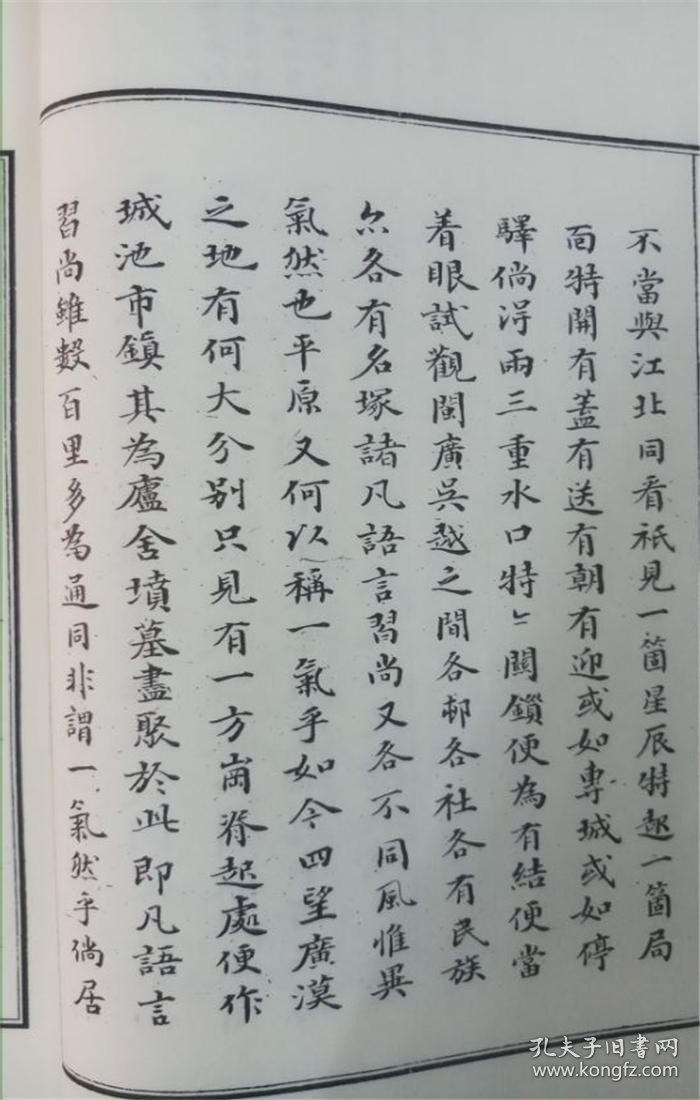 不當與江北同看祇見一箇星辰特起一箇局
面特開有蓋有送有朝有迎或如專城或如停
驛倘淂兩三重水口特〻關鎖便為有結便當
着眼試觀閩廣吳越之間各邨各社各有民族
尒各有名塚諸凡語言習尚又各不同風惟異
氣然也平原又何以稱一氣乎如今四望廣漠
之地有何大分别只見有一方崗脊起處便作
城池市鎮其為廬舍墳墓盡聚於此即凡語言
習尚雖數百里多為通同非謂一氣然乎倘居
孔夫子旧書网
www.kongfz.com